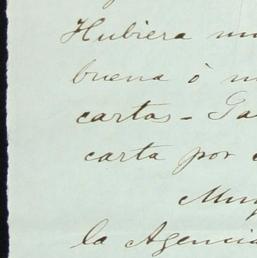 Hubiera
buena ó
cartas -
carta por
Muy
la Agencia